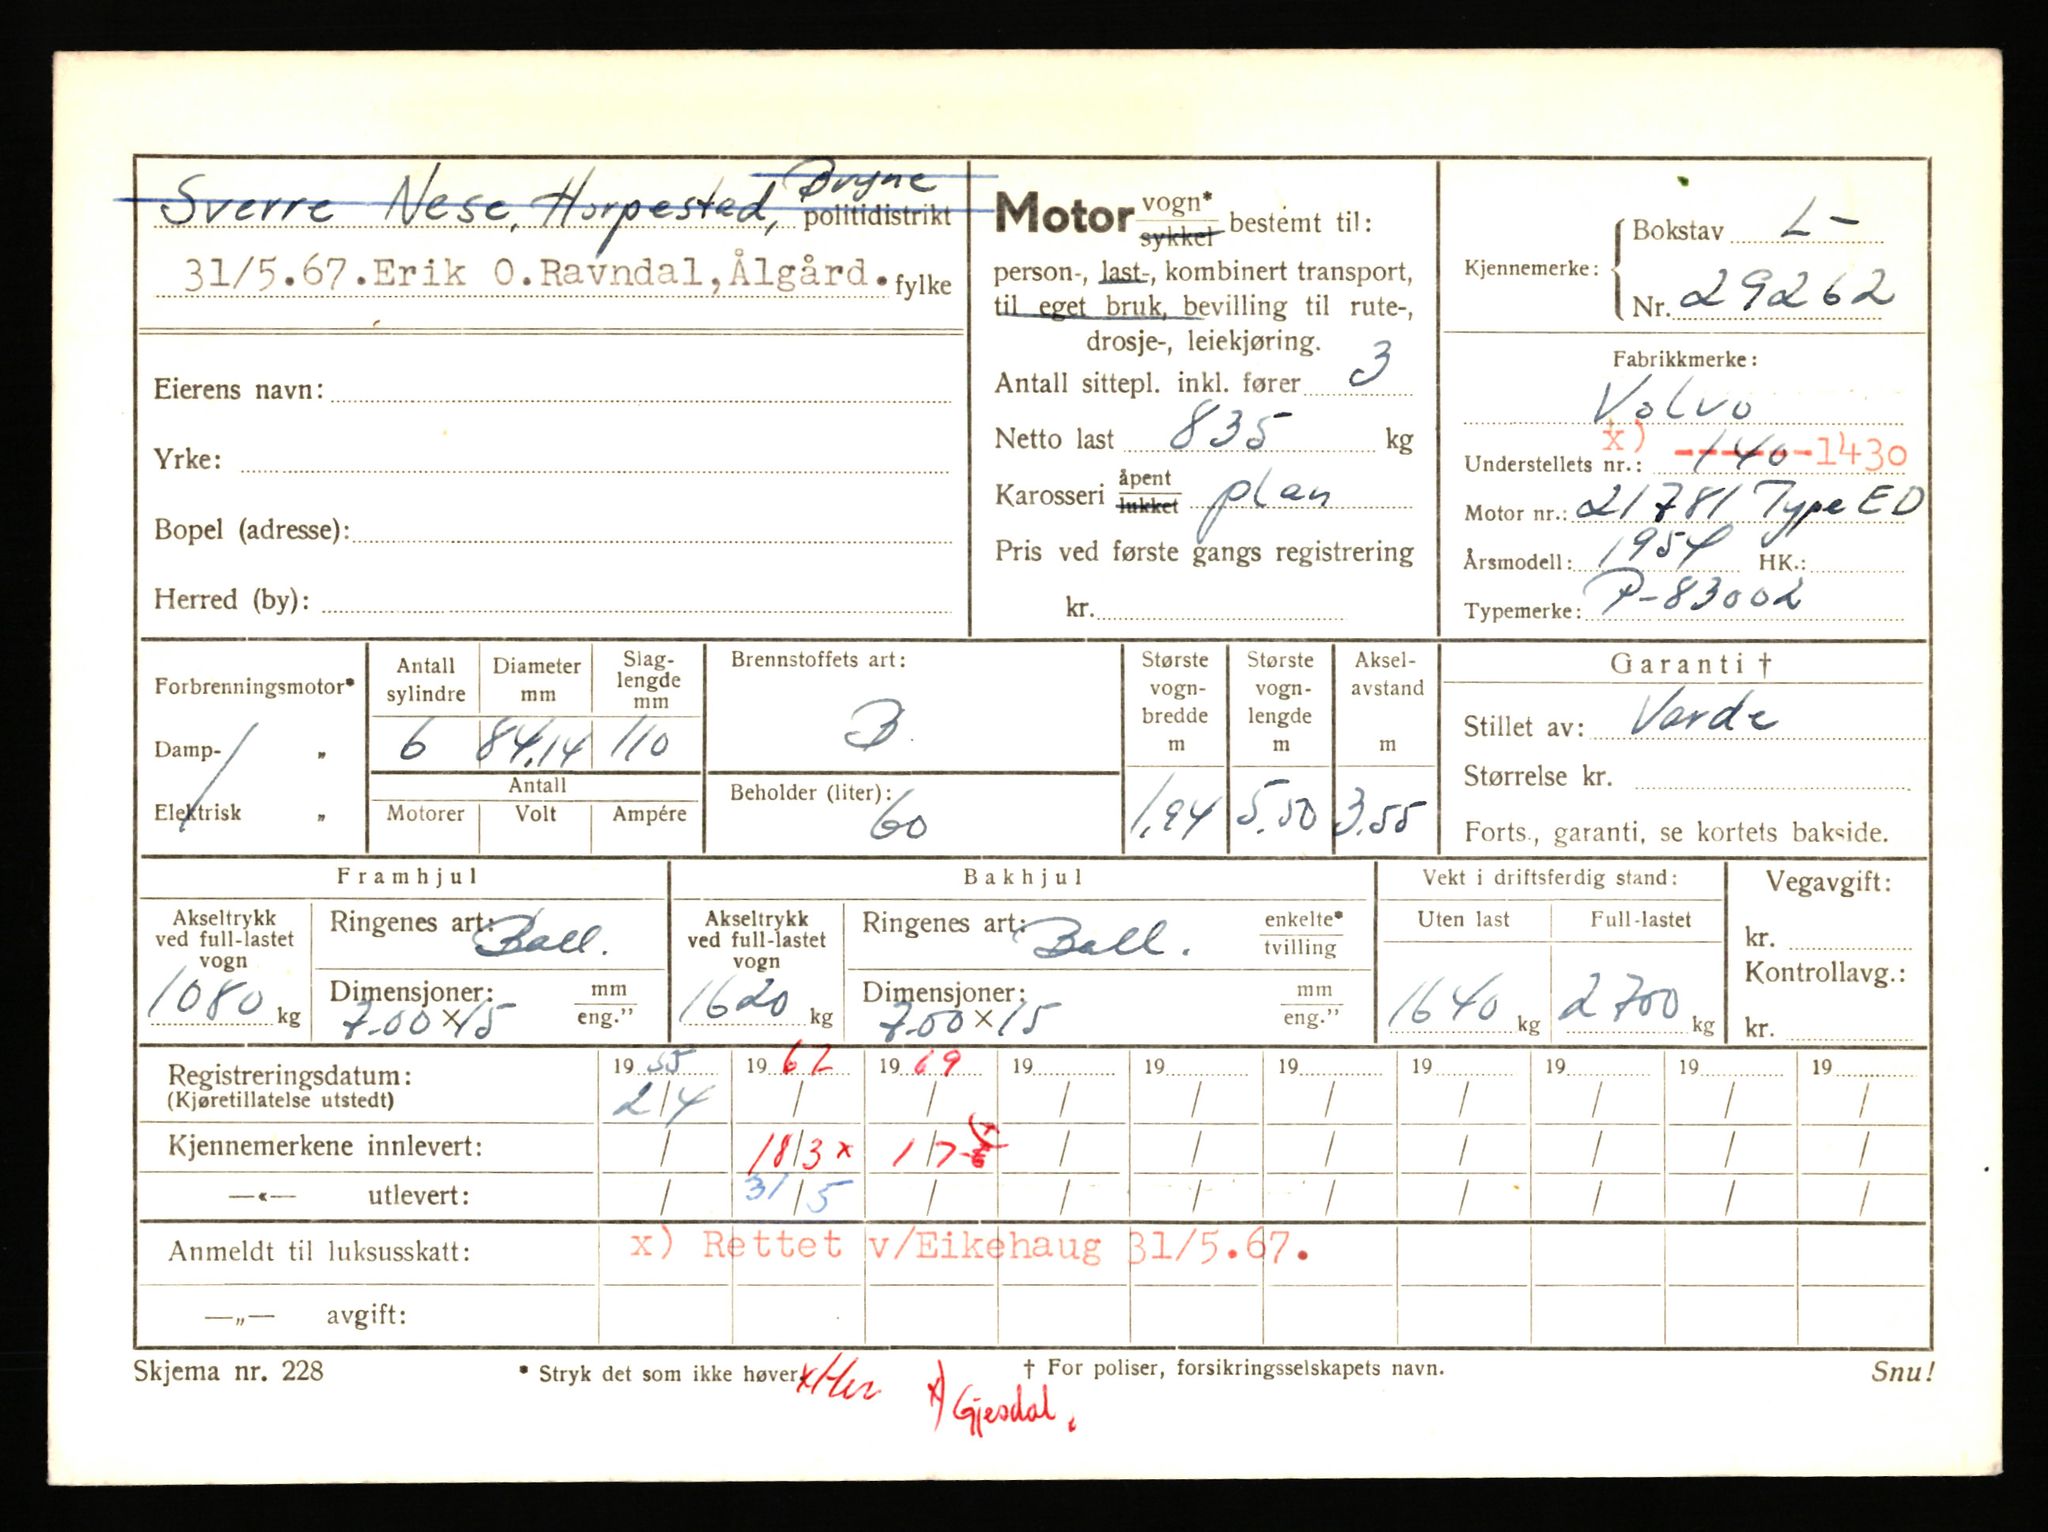 Sverre Nese, Horpestad, Bryne politidistrikt
31/5.67. Erik O. Ravndal, Ålgård. fylke
Eierens navn:
Yrke:
Bopel (adresse):
Herred (by):
Motor vogn* sykkel bestemt til:
person-, last-, kombinert transport,
til eget bruk, bevilling til rute-,
drosje-, leiekjøring.
Antall sittepl. inkl. fører 3
Netto last 835 kg
Karosseri åpent lukket plan
Pris ved første gangs registrering
kr.
Kjennemerke: Bokstav L-
Nr. 29262
Fabrikkmerke:
Volvo
Understellets nr.: x) 140 -1430
Motor nr.: 21781 Type ED
Årsmodell: 1954 HK.:
Typemerke: P-83002
Forbrenningsmotor*
Damp- „
Elektrisk „
Antall sylindre Diameter mm Slag-lengde mm
6 84,14 110
Antall
Motorer Volt Ampére
Brennstoffets art:
B
Beholder (liter): 60
Største vogn-bredde m 1,94
Største vogn-lengde m 5.50
Aksel-avstand m 3.55
Garanti †
Stillet av: Varde
Størrelse kr.
Forts., garanti, se kortets bakside.
Framhjul
Akseltrykk ved full-lastet vogn 1080 kg
Ringenes art: Ball.
Dimensjoner: 7.00 x 15 mm eng."
Bakhjul
Akseltrykk ved full-lastet vogn 1620 kg
Ringenes art: Ball. enkelte* tvilling
Dimensjoner: 7.00 x 15 mm eng."
Vekt i driftsferdig stand:
Uten last Full-lastet
1640 kg 2700 kg
Vegavgift:
kr.
Kontrollavg.:
kr.
Registreringsdatum: 19 55 19 62 19 69 19 19 19 19 19 19 19
(Kjøretillatelse utstedt) 2/4 / / / / / / / / /
Kjennemerkene innlevert: / 18/3 x 1/7 x) / / / / / / /
—«— utlevert: / 31/5 / / / / / / / /
Anmeldt til luksusskatt: x) Rettet v/Eikehaug 31/5.67.
—„— avgift:
Skjema nr. 228 * Stryk det som ikke høver. † For poliser, forsikringsselskapets navn. Snu!
x) Gjesdal.